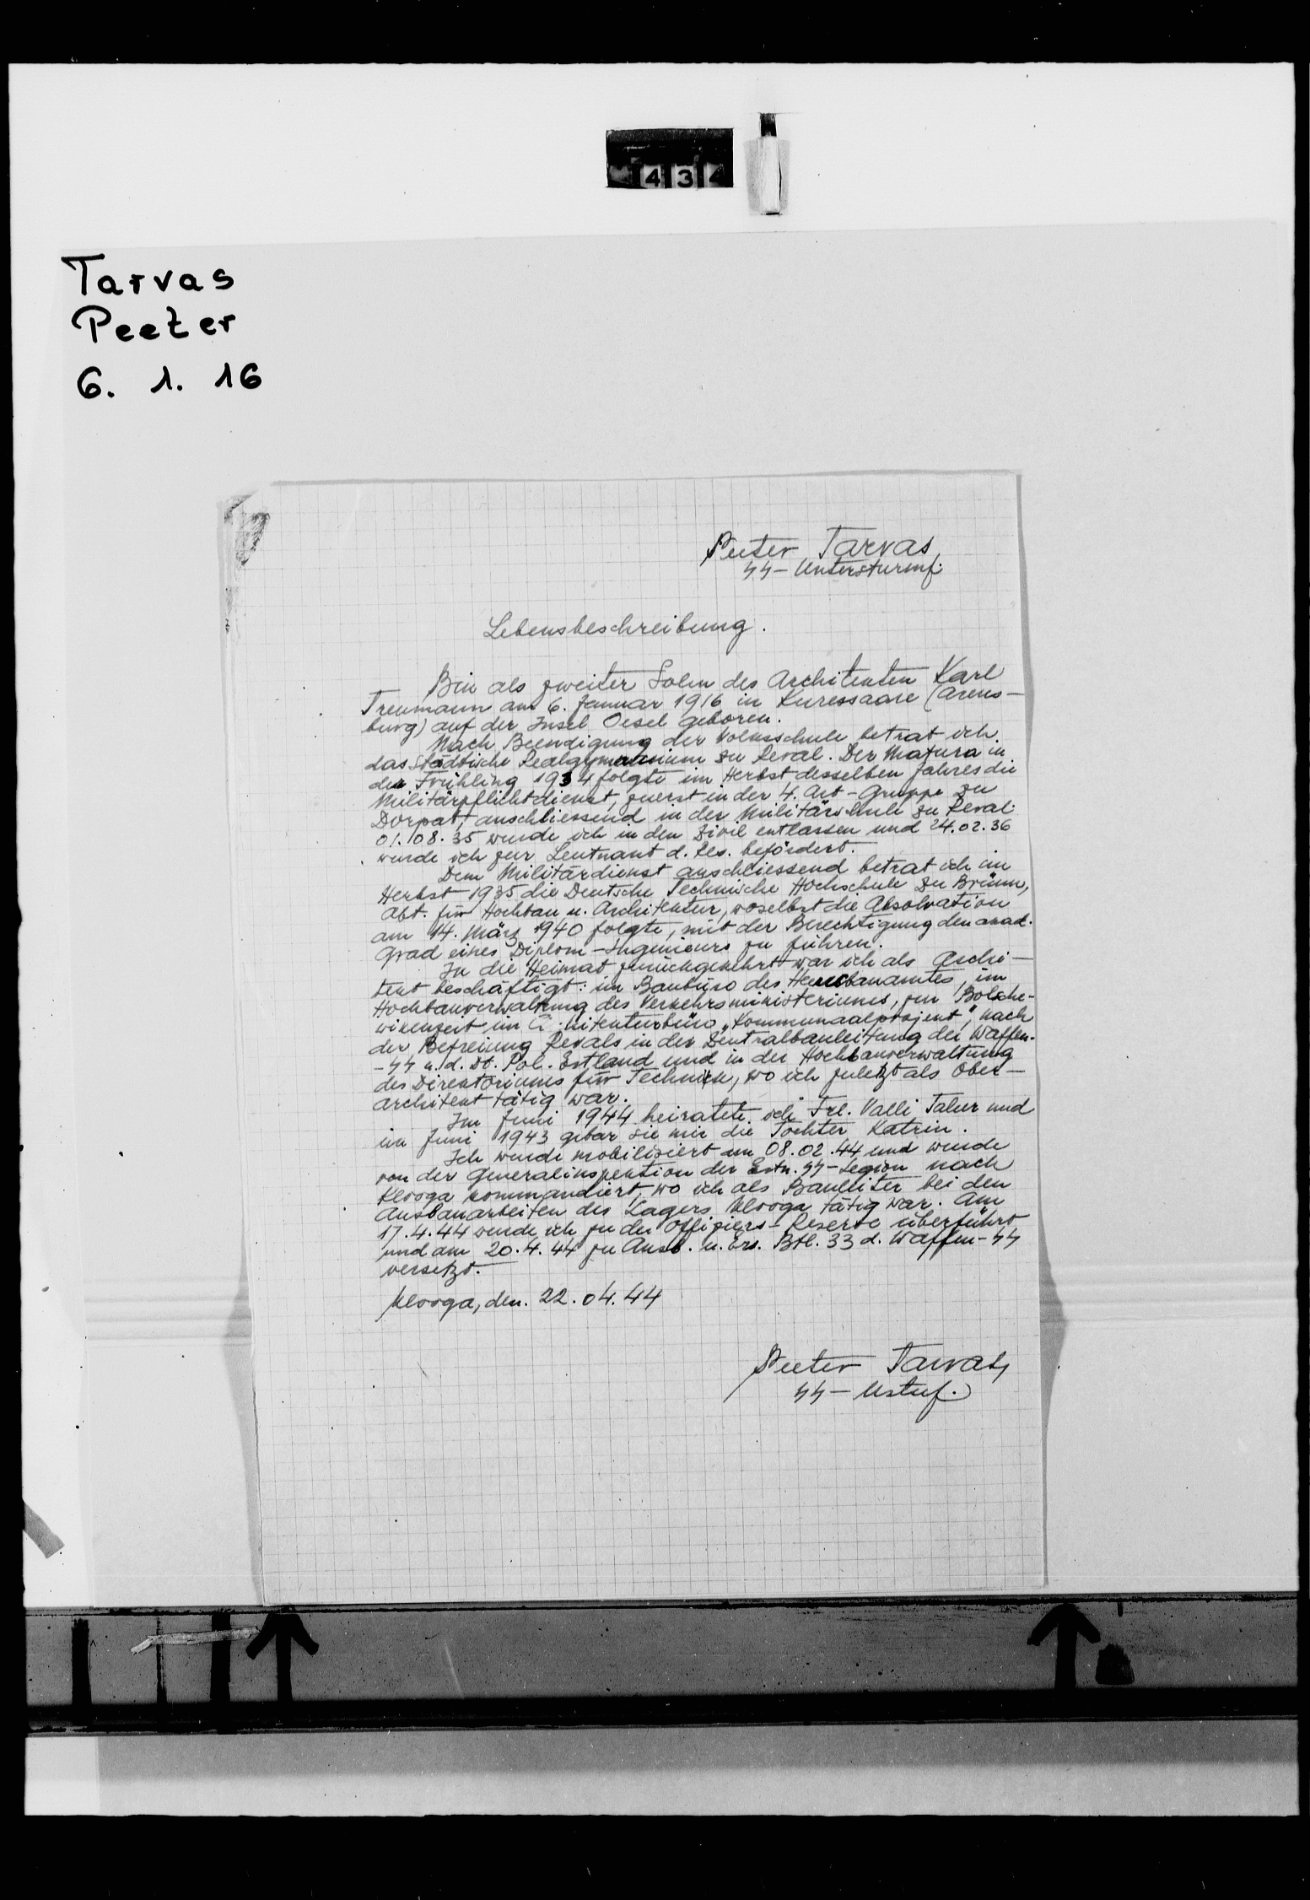 434
Tarvas
Peeter
6. 1. 16
Peeter Tarvas,
SS-Untersturmf.
Lebensbeschreibung.
Bin als zweiter Sohn des Architekten Karl
Treumann am 6. Januar 1916 in Kuressaare (Arens-
burg) auf der Insel Oesel geboren.
Nach Beendigung der Volksschule betrat ich
das Städtische Realgymnasium zu Reval. Der Matura in
den Frühling 1934 folgte im Herbst desselben Jahres die
Militärpflichtdienst, zuerst in der 4. Art-Gruppe zu
Dorpat, anschliessend in der Militärschule zu Reval.
01.08.35 wurde ich in den Zivil entlassen und 24.02.36
wurde ich zur Leutnant d. Res. befördert.
Dem Militärdienst anschliessend betrat ich im
Herbst 1935 die Deutsche Technische Hochschule zu Brünn,
Abt. für Hochbau u. Architektur, woselbst die Absolvation
am 14. März 1940 folgte, mit der Berechtigung den akad.
Grad eines Diplom-Ingenieurs zu führen.
In die Heimat zurückgekehrt war ich als Archi-
tekt beschäftigt: im Baubüro des, im
Hochbauverwaltung des Verkehrsministeriums, zur Bolsche-
wikenzeit im "Kommunaalprojekt", nach
der Befreiung Revals in der Zentralbauleitung der Waffen-
-SS u. d. Dt. Pol. Estland und in der Hochbauverwaltung
des Direktoriums für Technik, wo ich zuletzt als Ober-
architekt tätig war.
Im Juni 1944 heiratete ich Frl. Valli Talur und
im Juni 1943 gebar sie mir die Tochter Katrin.
Ich wurde mobilisiert am 08.02.44 und wurde
von der Generalinspektion der Estn. SS-Legion nach
Klooga kommandiert, wo ich als Bauleiter bei den
Ausbauarbeiten des Lagers Klooga tätig war. Am
17.4.44 wurde ich zu der Offiziers-Reserve überführt
und am 20.4.44 zu Ausb. u. Ers. Btl. 33 d. Waffen-SS
versetzt.
Klooga, den. 22.04.44
Peeter Tarvas,
SS-Ustuf.